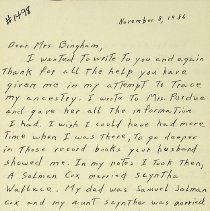 #1498
November 8, 1986
Dear Mrs. Bingham,
I wanted to write to you and again
thank for all the help you have
given me in my attempt to trace
my ancestry. I wrote to Mrs. Purdue
and gave her all the information
I had. I wish I could have had more
time when I was there, to go deeper
in those record books your husband
showed me. In my notes I took then,
A Salmon Cox married Scyntha
Wallace. My dad was Samuel Salmon
Cox and my aunt Scyntha was married